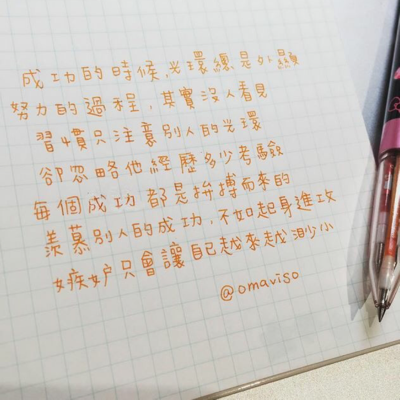 成功的時候,光環總是外顯
努力的過程,其實沒人看見
習慣只注意別人的光環
卻忽略他經歷多少考驗
每個成功都是拚搏而來的
羨慕別人的成功,不如起身進攻
嫉妒只會讓自己越來越渺小
@omaviso